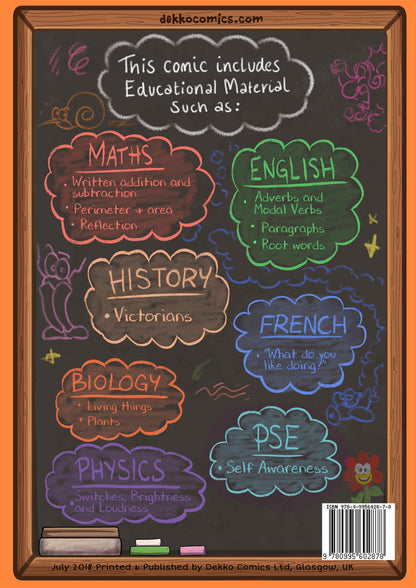 dekkocomics.com
This Comic includes
Educational Material
Such as:
MATHS
• Written addition and
subtraction
• Perimeter + area
• Reflection
ENGLISH
• Adverbs and
Modal Verbs
• Paragraphs
• Root words
HISTORY
• Victorians
FRENCH
• "What do you
like doing?"
BIOLOGY
• Living things
• Plants
PSE
• Self Awareness
PHYSICS
• Switches, Brightness
and Loudness
ISBN 978-0-9956028-7-8
9 780995 602878
July 2018 Printed & Published by Dekko Comics Ltd, Glasgow, UK